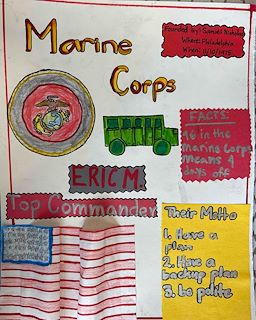 Marine
Corps
Founded by: Samuel Nicholas
Where: Philadelphia
When: 11/10/1775
FACTS:
96 in the
marine Corps
means 4
days off
ERIC M.
Top Commander
Their Motto
1. Have a
plan
2. Have a
backup plan
3. be polite